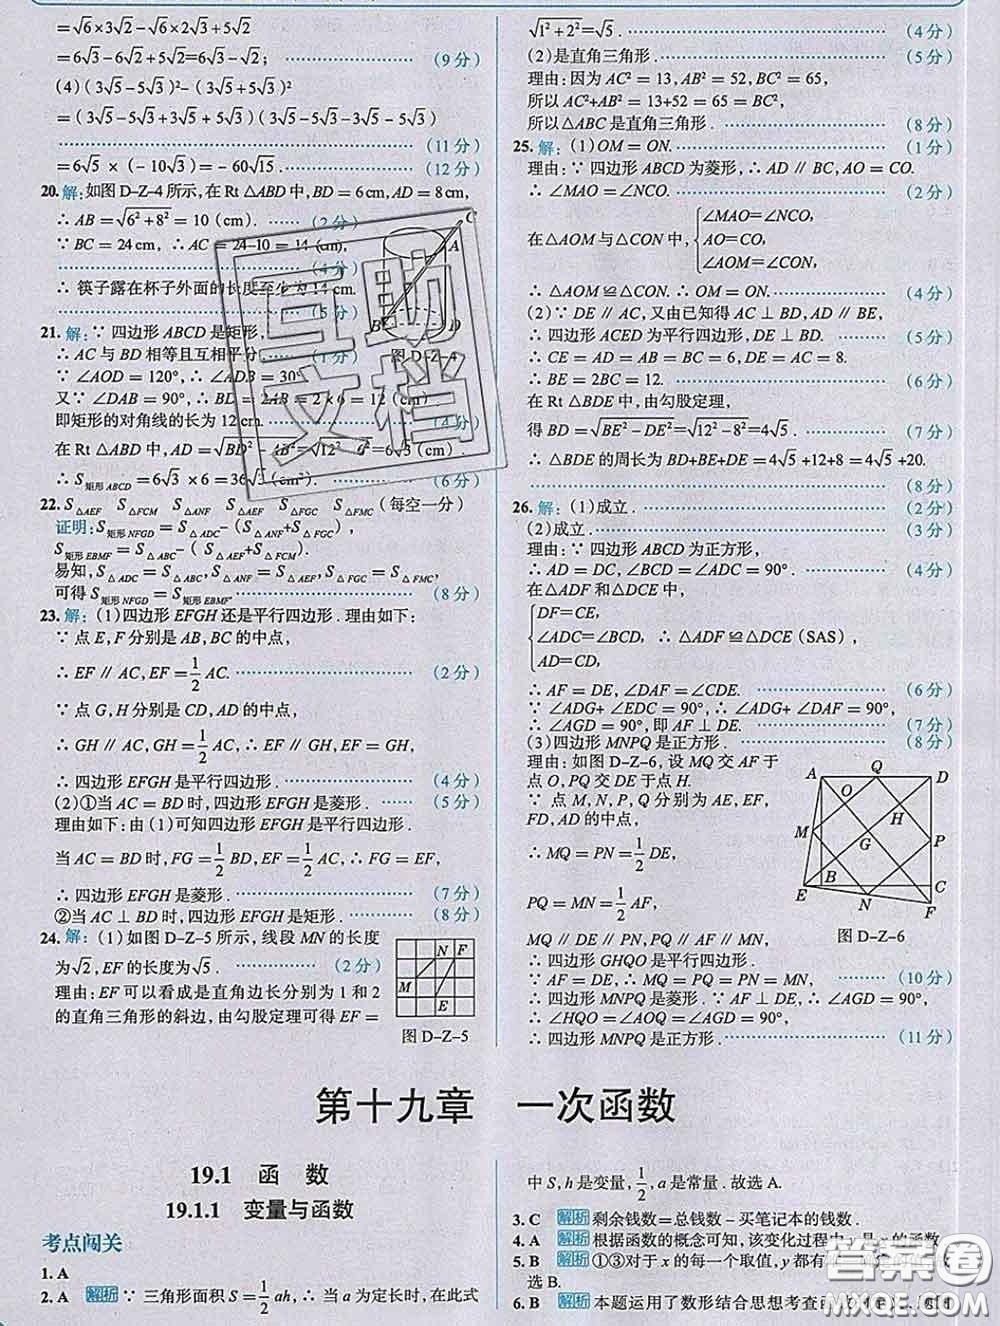 =√6×3√2-√6×2√3+5√2
=6√3-6√2+5√2=6√3-√2; (9分)
(4)(3√5-5√3)²-(3√5+5√3)²
=(3√5-5√3+3√5+5√3)(3√5-5√3-3√5-5√3)
(11分)
=6√5×(-10√3)=-60√15. (12分)
20. 解:如图D-Z-4所示,在Rt△ABD中,BD=6cm,AD=8cm,
∴AB=√(6²+8²)=10(cm). (2分)
∵BC=24cm,∴AC=24-10=14(cm),
(4分)
∴筷子露在杯子外面的长度至少为14cm.
(5分)
C
A
B
D
图D-Z-4
21. 解:∵四边形ABCD是矩形,
∴AC与BD相等且互相平分. (1分)
∵∠AOD=120°,∴∠ADB=30°.
又∵∠DAB=90°,∴BD=2AB=2×6=12(cm)
即矩形的对角线的长为12cm. (4分)
在Rt△ABD中,AD=√(BD²-AB²)=√(12²-6²)=6√3(cm).
∴S矩形ABCD=6√3×6=36√3(cm²). (6分)
22. S△AEF S△FCM S△ANF S△AEF S△FGC S△FMC(每空一分)
证明:S矩形NFGD=S△ADC-(S△ANF+S△FGC),
S矩形EBMF=S△ABC-(S△AEF+S△FCM).
易知,S△ADC=S△ABC,S△ANF=S△AEF,S△FGC=S△FMC,
可得S矩形NFGD=S矩形EBMF. (8分)
23. 解:(1)四边形EFGH还是平行四边形.理由如下:
∵点E,F分别是AB,BC的中点,
∴EF∥AC,EF=1/2AC. (2分)
∵点G,H分别是CD,AD的中点,
∴GH∥AC,GH=1/2AC,∴EF∥GH,EF=GH,
∴四边形EFGH是平行四边形. (4分)
(2)①当AC=BD时,四边形EFGH是菱形. (5分)
理由如下:由(1)可知四边形EFGH是平行四边形.
当AC=BD时,FG=1/2BD,EF=1/2AC,∴FG=EF,
∴四边形EFGH是菱形. (7分)
②当AC⊥BD时,四边形EFGH是矩形. (8分)
24. 解:(1)如图D-Z-5所示,线段MN的长度
为√2,EF的长度为√5. (2分)
理由:EF可以看成是直角边长分别为1和2
的直角三角形的斜边,由勾股定理可得EF=
N F
M
E
图D-Z-5
√(1²+2²)=√5. (4分)
(2)是直角三角形. (5分)
理由:因为AC²=13,AB²=52,BC²=65,
所以AC²+AB²=13+52=65=BC²,
所以△ABC是直角三角形. (8分)
25. 解:(1)OM=ON. (1分)
理由:∵四边形ABCD为菱形,∴AD∥BC,AO=CO.
∴∠MAO=∠NCO. (2分)
在△AOM与△CON中,{∠MAO=∠NCO,
AO=CO,
∠AOM=∠CON,
∴△AOM≌△CON.∴OM=ON. (4分)
(2)∵DE∥AC,又由已知得AC⊥BD,AD∥BE,
∴四边形ACED为平行四边形,DE⊥BD. (5分)
∴CE=AD=AB=BC=6,DE=AC=8.
∴BE=2BC=12. (6分)
在Rt△BDE中,由勾股定理,
得BD=√(BE²-DE²)=√(12²-8²)=4√5. (7分)
∴△BDE的周长为BD+BE+DE=4√5+12+8=4√5+20.
(8分)
26. 解:(1)成立. (2分)
(2)成立. (3分)
理由:∵四边形ABCD为正方形,
∴AD=DC,∠BCD=∠ADC=90°. (4分)
在△ADF和△DCE中,
{DF=CE,
∠ADC=∠BCD,∴△ADF≌△DCE(SAS),
AD=CD,
∴AF=DE,∠DAF=∠CDE. (6分)
∵∠ADG+∠EDC=90°,∴∠ADG+∠DAF=90°,
∴∠AGD=90°,即AF⊥DE. (7分)
(3)四边形MNPQ是正方形. (8分)
理由:如图D-Z-6,设MQ交AF于
点O,PQ交DE于点H.
∵点M,N,P,Q分别为AE,EF,
FD,AD的中点,
∴MQ=PN=1/2DE,
PQ=MN=1/2AF,
MQ∥DE∥PN,PQ∥AF∥MN,
A Q D
O
H
M
G
P
B
C
E
N
F
图D-Z-6
∴四边形GHQO是平行四边形.
∵AF=DE,∴MQ=PQ=PN=MN, (10分)
∴四边形MNPQ是菱形.∵AF⊥DE,∴∠AGD=90°,
∴∠HQO=∠AOQ=∠AGD=90°,
∴四边形MNPQ是正方形. (11分)
第十九章 一次函数
19.1 函 数
19.1.1 变量与函数
考点闯关
1. A
2. A 解析 ∵三角形面积S=1/2ah,∴当a为定长时,在此式
中S,h是变量,1/2,a是常量.故选A.
3. C 解析 剩余钱数=总钱数-买笔记本的钱数.
4. A 解析 根据函数的概念可知,该变化过程中y是x的函数
5. B 解析 ①③对于x的每一个取值,y都有
选B.
6. B 解析 本题运用了数形结合思想考查
互助文档
答案圈
MXQE.COM